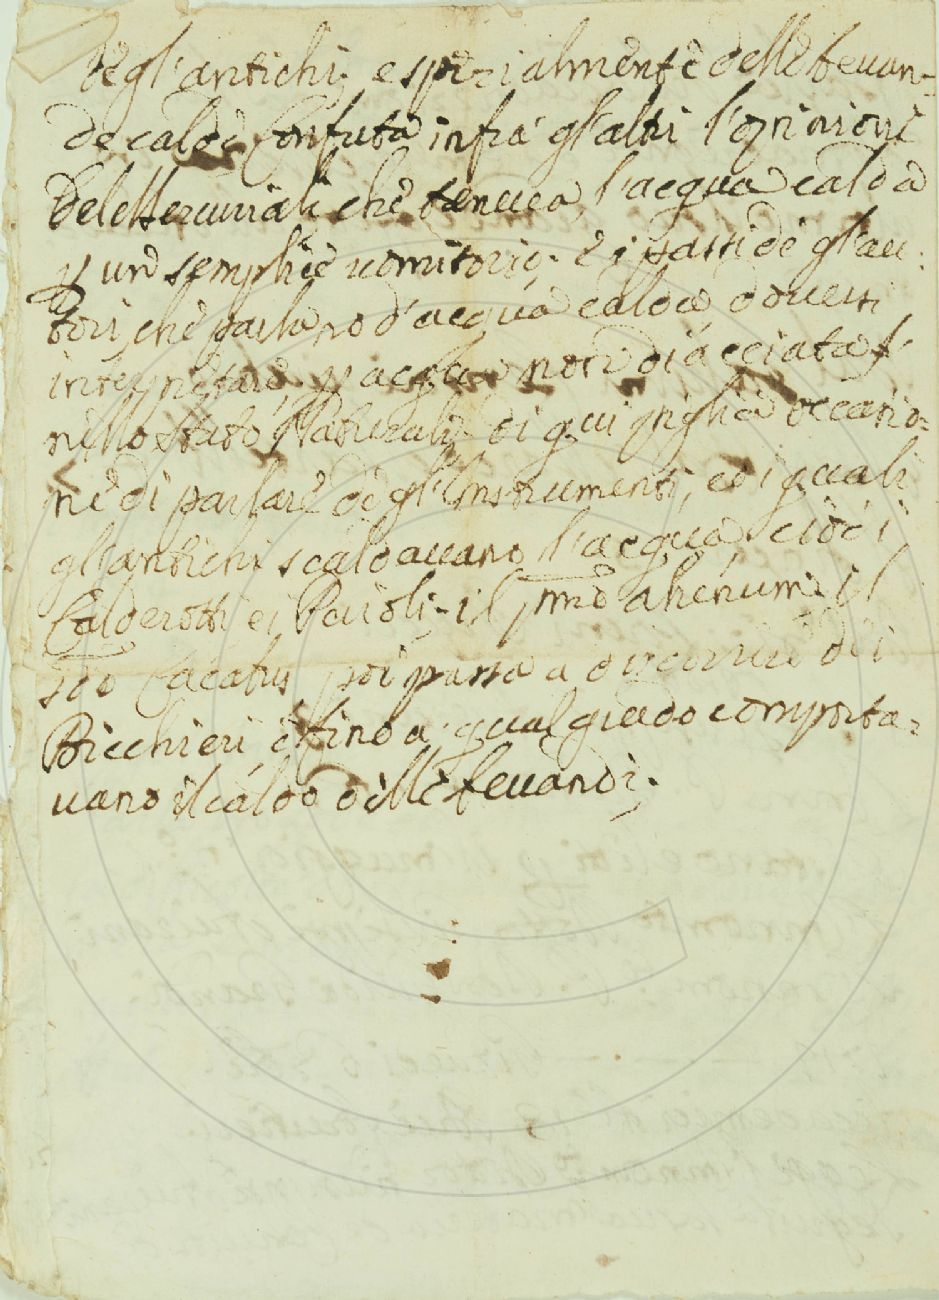 degl'antichi, e spezialmente delle bevan=
de calde Confuta infra gl'altri l'opinioni
del Mercuriali che teneva, l'acqua calda
p un semplice vomitorio. e i passi de gl'au:
tori che parlano d'acqua calda doversi
interpretare p acqua non diacciata
nello stato Naturale. di qui piglia occasio=
ne di parlare de gl'Instrumenti, co i quali
gl'antichi scaldavano l'acqua, cioè i
Calderotti ei Paioli. il pmo ahenum. il
sdo Cacabus poi passa a discorrere de i
Bicchieri, e fino a qual grado comporta=
vano il caldo delle bevande.